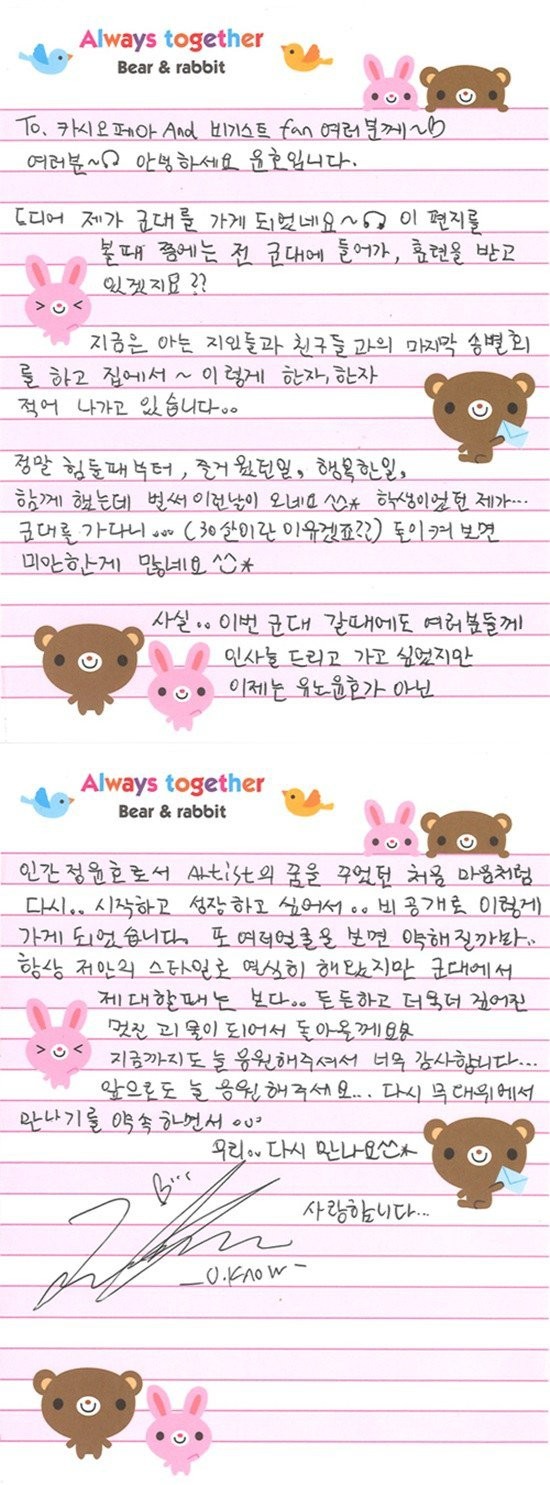 Always together
Bear & rabbit
To. 카시오페아 And 비기스트 fan 여러분께~♡
여러분~ 안녕하세요 윤호입니다.
드디어 제가 군대를 가게 되었네요~ 이 편지를
볼때 쯤에는 전 군대에 들어가, 훈련을 받고
있겠지요??
지금은 아는 지인들과 친구들과의 마지막 송별회
를 하고 집에서~ 이렇게 한자, 한자
적어 나가고 있습니다..
정말 힘들때부터, 즐거웠던일, 행복한일,
함께 했는데 벌써 이런날이 오네요 ^^* 학생이었던 제가...
군대를 가다니... (30살이란 이유겠죠??) 돌이켜 보면
미안한게 많네요 ^^*
사실.. 이번 군대 갈때에도 여러분들께
인사를 드리고 가고 싶었지만
이제는 유노윤호가 아닌
Always together
Bear & rabbit
인간정윤호로서 Artist의 꿈을 꾸었던 처음 마음처럼
다시.. 시작하고 성장하고 싶어서.. 비공개로 이렇게
가게 되었습니다. 또 여러얼굴을 보면 약해질까봐..
항상 저만의 스타일로 열심히 해왔지만 군대에서
제대할때는 보다.. 든든하고 더욱더 깊어진
멋진 괴물이 되어서 돌아올께요
지금까지도 늘 응원해주셔서 너무 감사합니다...
앞으로도 늘 응원해주세요... 다시 무대위에서
만나기를 약속하면서...
우리.. 다시 만나요^^*
사랑합니다...
-U.Know-